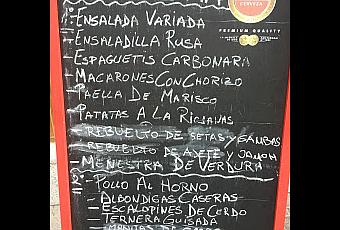 CERVEZA
PREMIUM QUALITY
-ENSALADA VARIADA
-ENSALADILLA RUSA
-ESPAGUETIS CARBONARA
-MACARONES CON CHORIZO
-PAELLA DE MARISCO
-PATATAS A LA RIOJANAS
-REBUELTO DE SETAS Y GAMBAS
-REBUELTO DE AJETE Y JAMON
-MENESTRA DE VERDURA
-POLLO AL HORNO
-ALBONDIGAS CASERAS
-ESCALOPINES DE CERDO
-TERNERA GUISADA